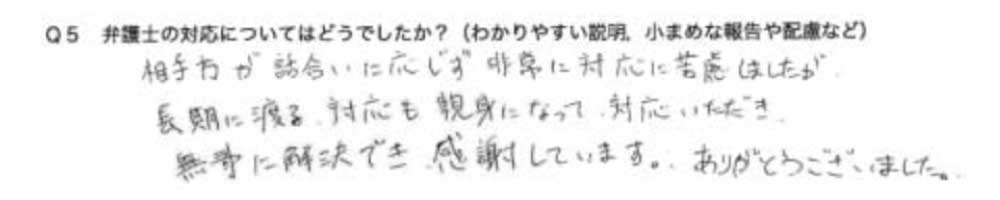 Q5 弁護士の対応についてはどうでしたか？（わかりやすい説明，小まめな報告や配慮など）
相手方が話合いに応じず非常に対応に苦慮しましたが、
長期に渡る、対応も親身になって、対応いただき、
無事に解決でき、感謝しています。、ありがとうございました。